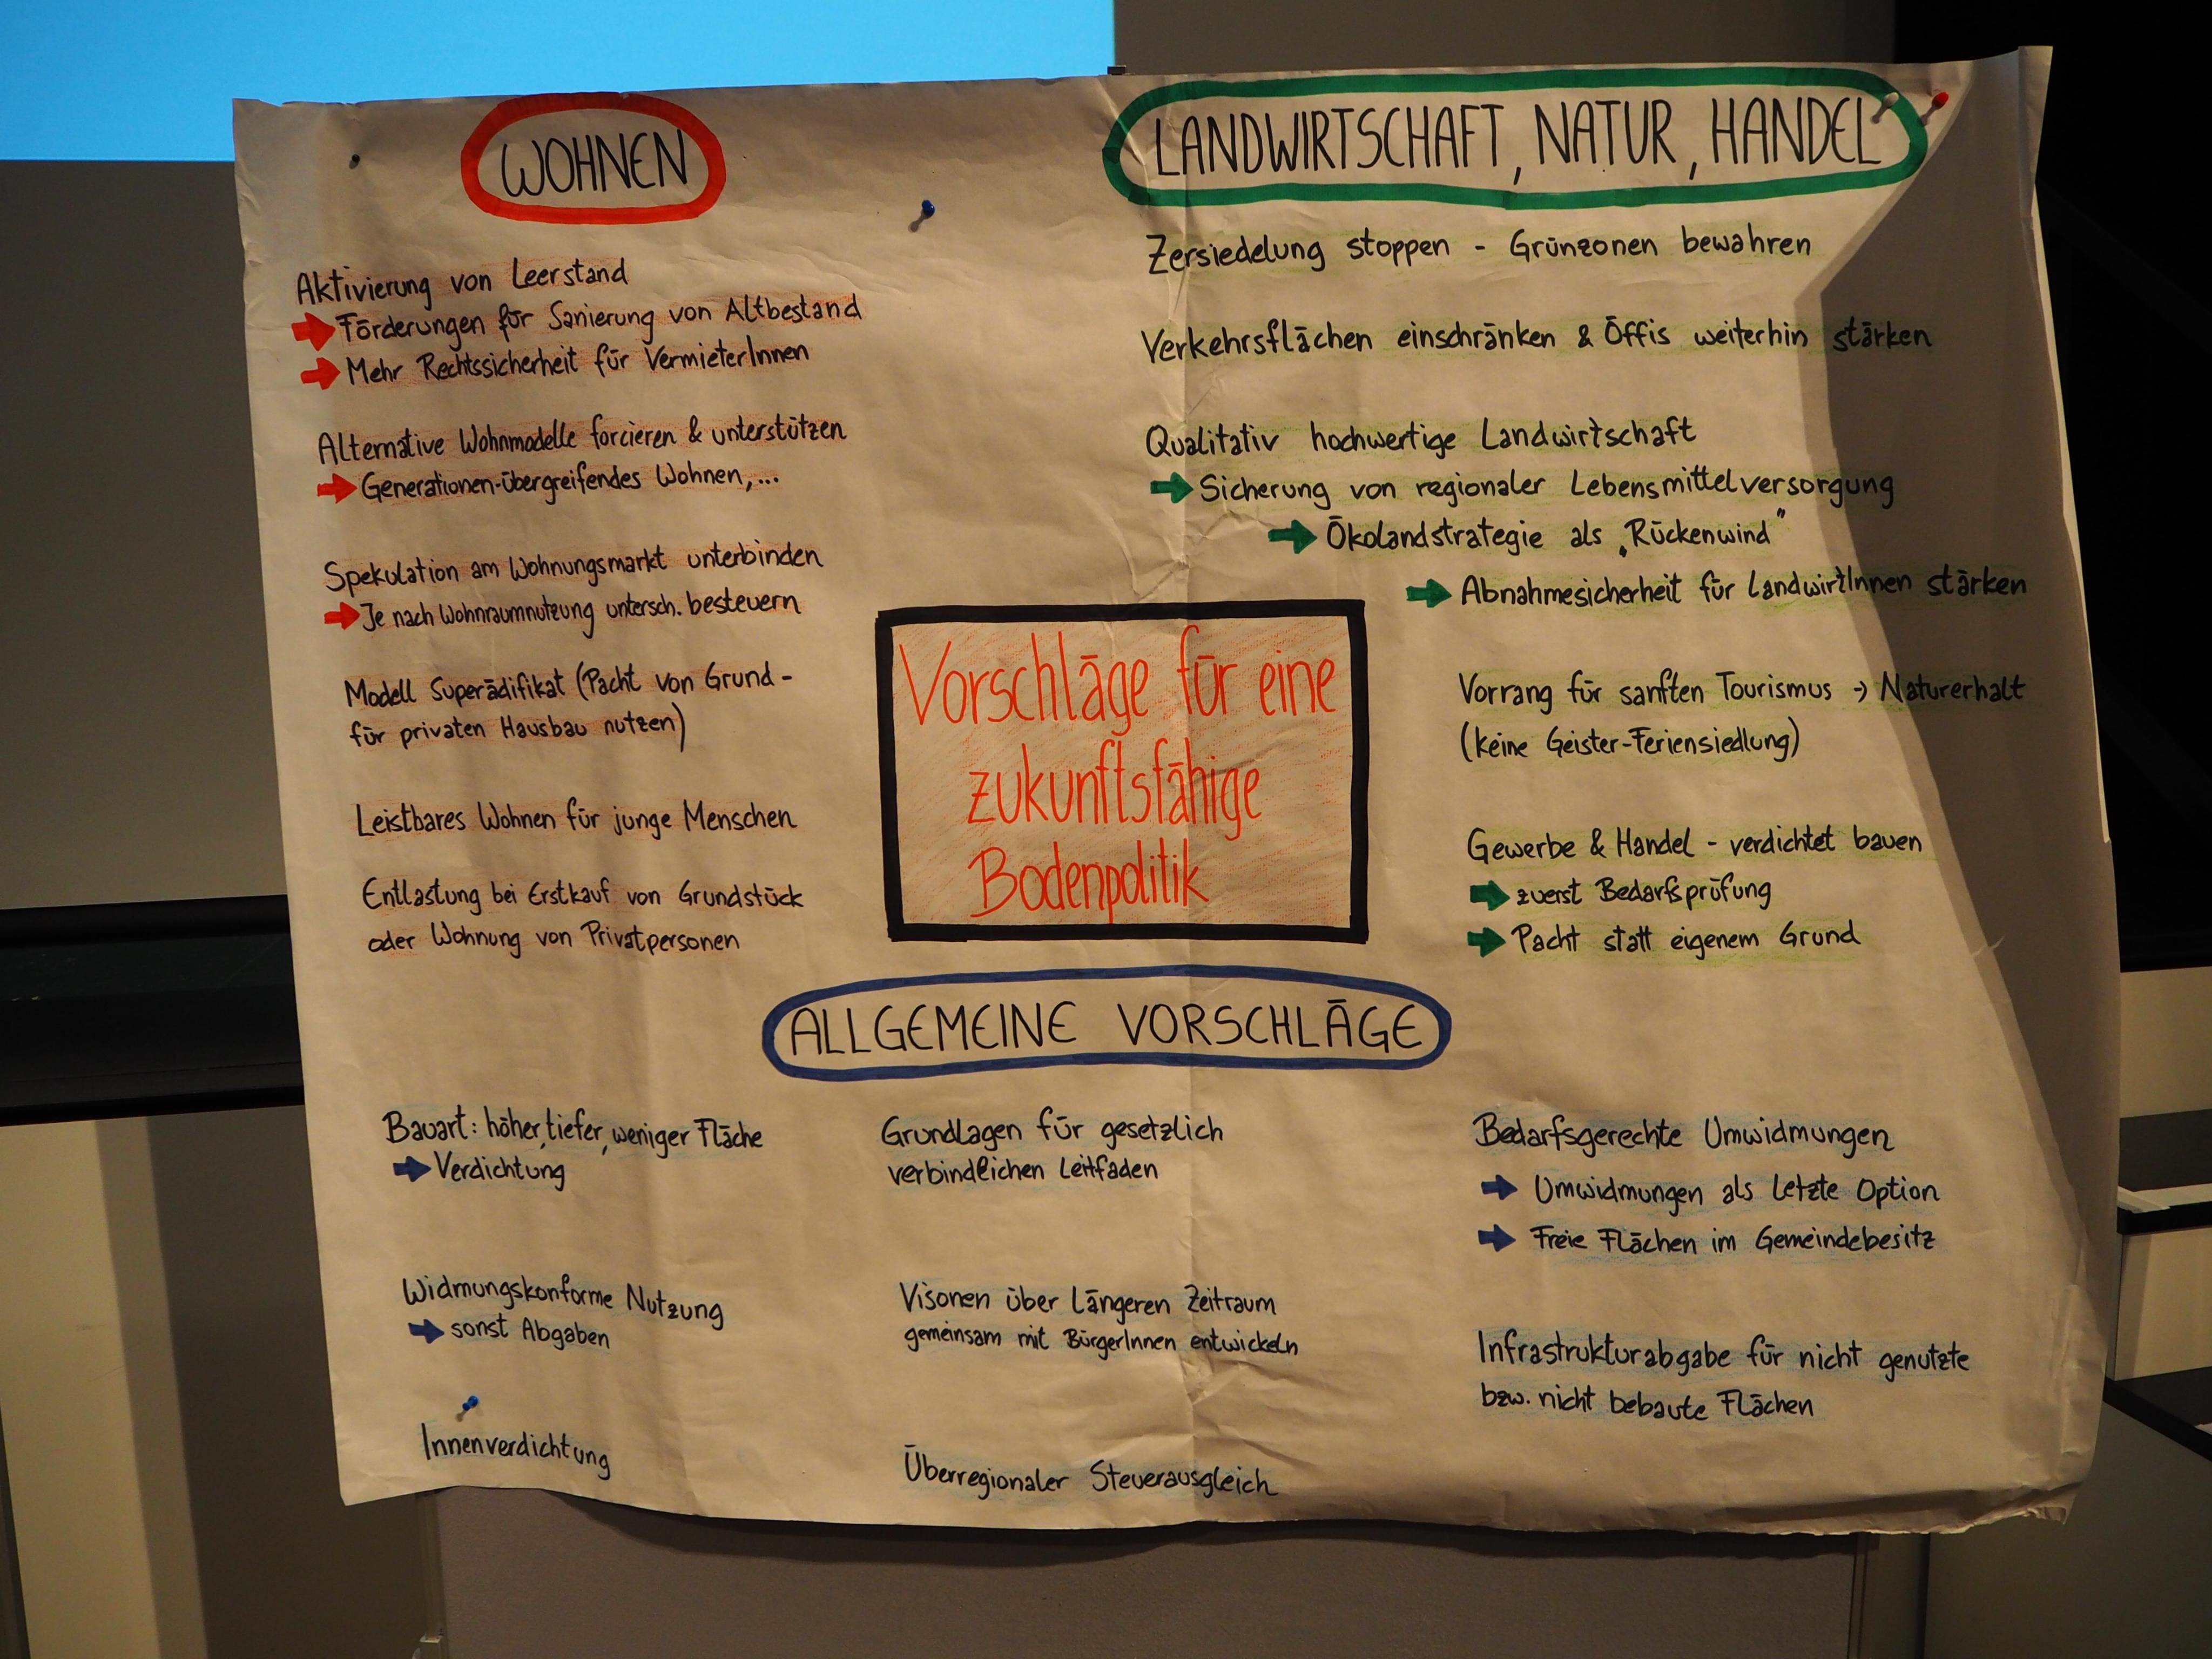 WOHNEN
Aktivierung von Leerstand
Förderungen für Sanierung von Altbestand
Mehr Rechtssicherheit für VermieterInnen
Alternative Wohnmodelle forcieren & unterstützen
Generationen-übergreifendes Wohnen,...
Spekulation am Wohnungsmarkt unterbinden
Je nach Wohnraumnutzung untersch. besteuern
Modell Superädifikat (Pacht von Grund -
für privaten Hausbau nutzen)
Leistbares Wohnen für junge Menschen
Entlastung bei Erstkauf von Grundstück
oder Wohnung von Privatpersonen
LANDWIRTSCHAFT, NATUR, HANDEL
Zersiedelung stoppen - Grünzonen bewahren
Verkehrsflächen einschränken & Öffis weiterhin stärken
Qualitativ hochwertige Landwirtschaft
Sicherung von regionaler Lebensmittelversorgung
Ökolandstrategie als „Rückenwind"
Abnahmesicherheit für LandwirtInnen stärken
Vorrang für sanften Tourismus → Naturerhalt
(keine Geister-Feriensiedlung)
Gewerbe & Handel - verdichtet bauen
zuerst Bedarfsprüfung
Pacht statt eigenem Grund
Vorschläge für eine
zukunftsfähige
Bodenpolitik
ALLGEMEINE VORSCHLÄGE
Bauart: höher, tiefer, weniger Fläche
Verdichtung
Widmungskonforme Nutzung
sonst Abgaben
Innenverdichtung
Grundlagen für gesetzlich
verbindlichen Leitfaden
Visonen über Längeren Zeitraum
gemeinsam mit BürgerInnen entwickeln
Überregionaler Steuerausgleich
Bedarfsgerechte Umwidmungen
Umwidmungen als letzte Option
Freie Flächen im Gemeindebesitz
Infrastrukturabgabe für nicht genutzte
bzw. nicht bebaute Flächen